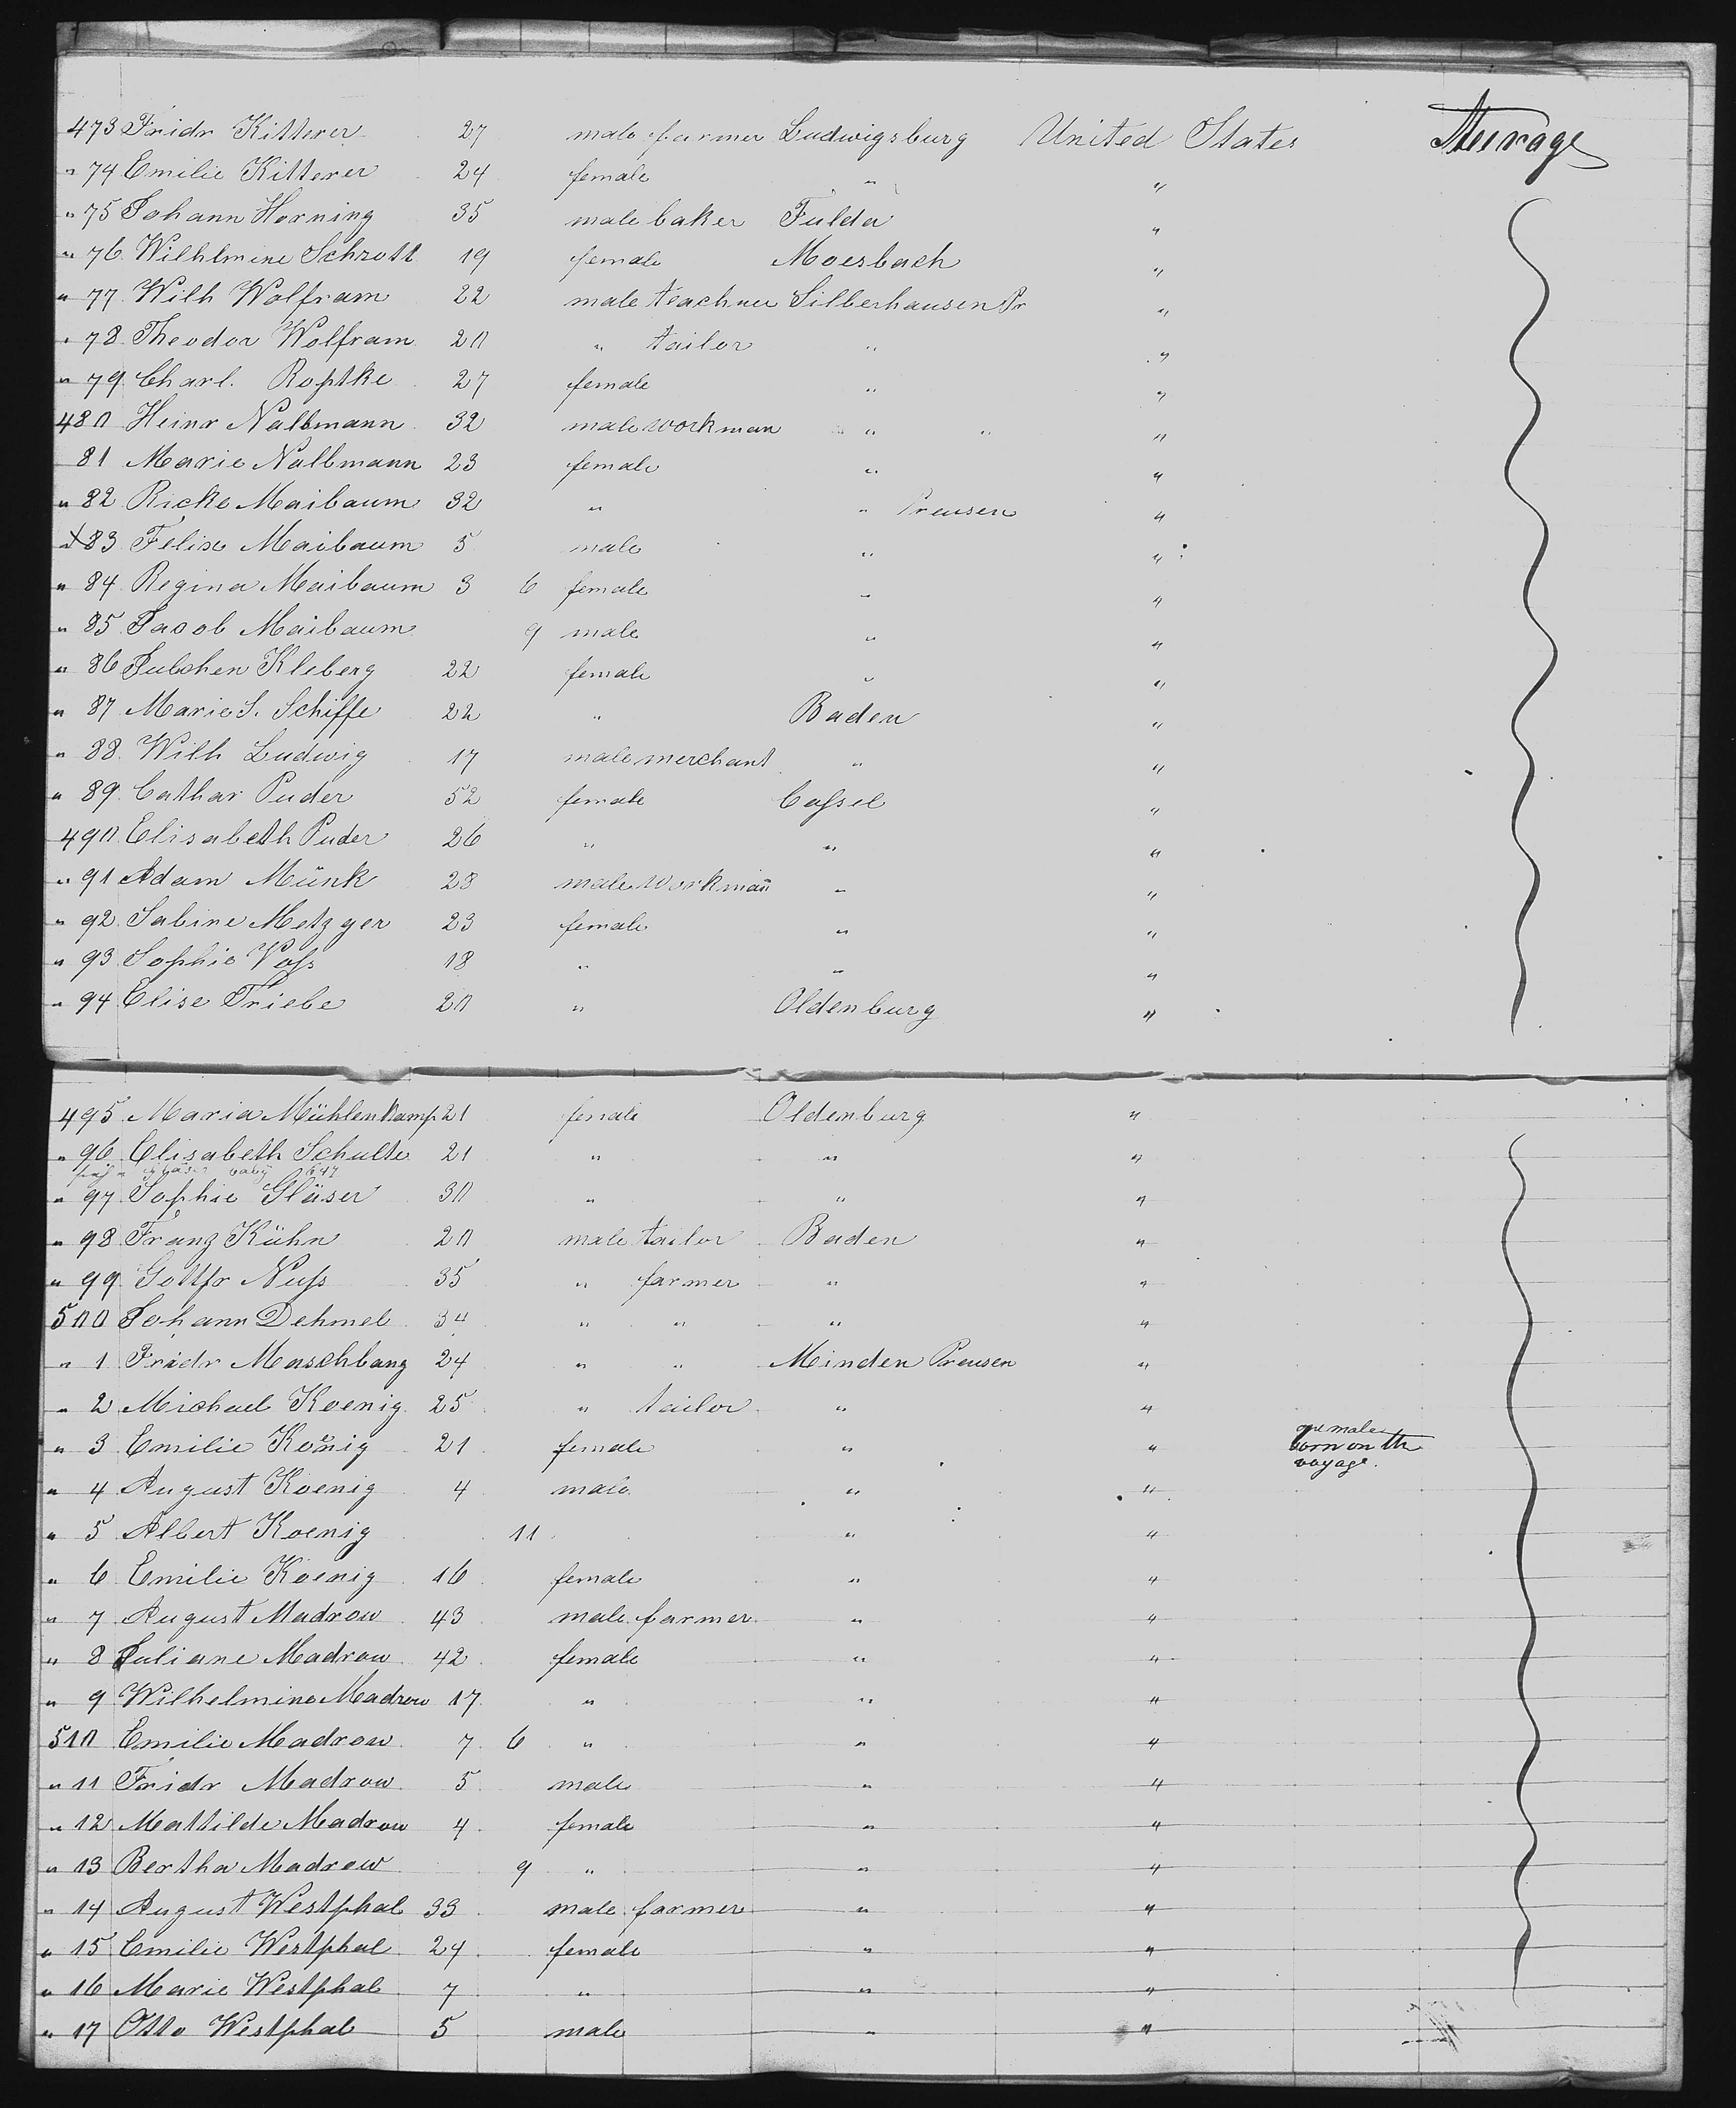 473 Fridr Kitterer 27 male farmer Ludwigsburg United States Steerage
" 74 Emilie Kitterer 24 female " "
" 75 Johann Horning 35 male baker Fulda "
" 76 Wilhlmine Schrott 19 female Moesbach "
" 77 Wilh Wolfram 22 male Silberhausen Pr "
" 78 Theodor Wolfram 20 " tailor " "
" 79 Charl. Roptke 27 female " "
480 Heinr Nallmann 32 male workman " " "
81 Marie Nallmann 23 female " "
" 82 Ricke Maibaum 32 " " Preusen "
" 83 Felix Maibaum 5 male " "
" 84 Regina Maibaum 3 6 female " "
" 85 Jacob Maibaum 9 male " "
" 86 Julchen Kleberg 22 female " "
" 87 Marie S. Schiffe 22 " Baden "
" 88 Wilh Ludwig 17 male merchant " "
" 89 Cathar Puder 52 female Cassel "
490 Elisabeth Puder 26 " " "
" 91 Adam Münk 28 male workman " "
" 92 Sabine Metzger 23 female " "
" 93 Sophie Voss 18 " " "
" 94 Elise Triebe 20 " Oldenburg "
495 Maria Mühlenkamp 21 female Oldenburg "
" 96 Elisabeth Schulte 21 " " "
baby 647
" 97 Sophie Gläser 30 " " "
" 98 Franz Kühn 20 male tailor Baden "
" 99 Gottfr Nuss 35 " farmer " "
500 Johann Dehmel 34 " " " "
" 1 Fridr Maschbang 24 " " Minden Preusen "
" 2 Michael Koenig 25 " tailor " "
" 3 Emilie Koenig 21 female " " one male born on the voyage.
" 4 August Koenig 4 male " "
" 5 Albert Koenig 11 " "
" 6 Emilie Koenig 16 female " "
" 7 August Madrow 43 male farmer " "
" 8 Juliane Madrow 42 female " "
" 9 Wilhelmine Madrow 17 " " "
510 Emilie Madrow 7 6 " " "
" 11 Fridr Madrow 5 male " "
" 12 Mattilde Madrow 4 female " "
" 13 Bertha Madrow 9 " " "
" 14 August Westphal 33 male farmer " "
" 15 Emilie Westphal 24 female " "
" 16 Marie Westphal 7 " " "
" 17 Otto Westphal 5 male " "